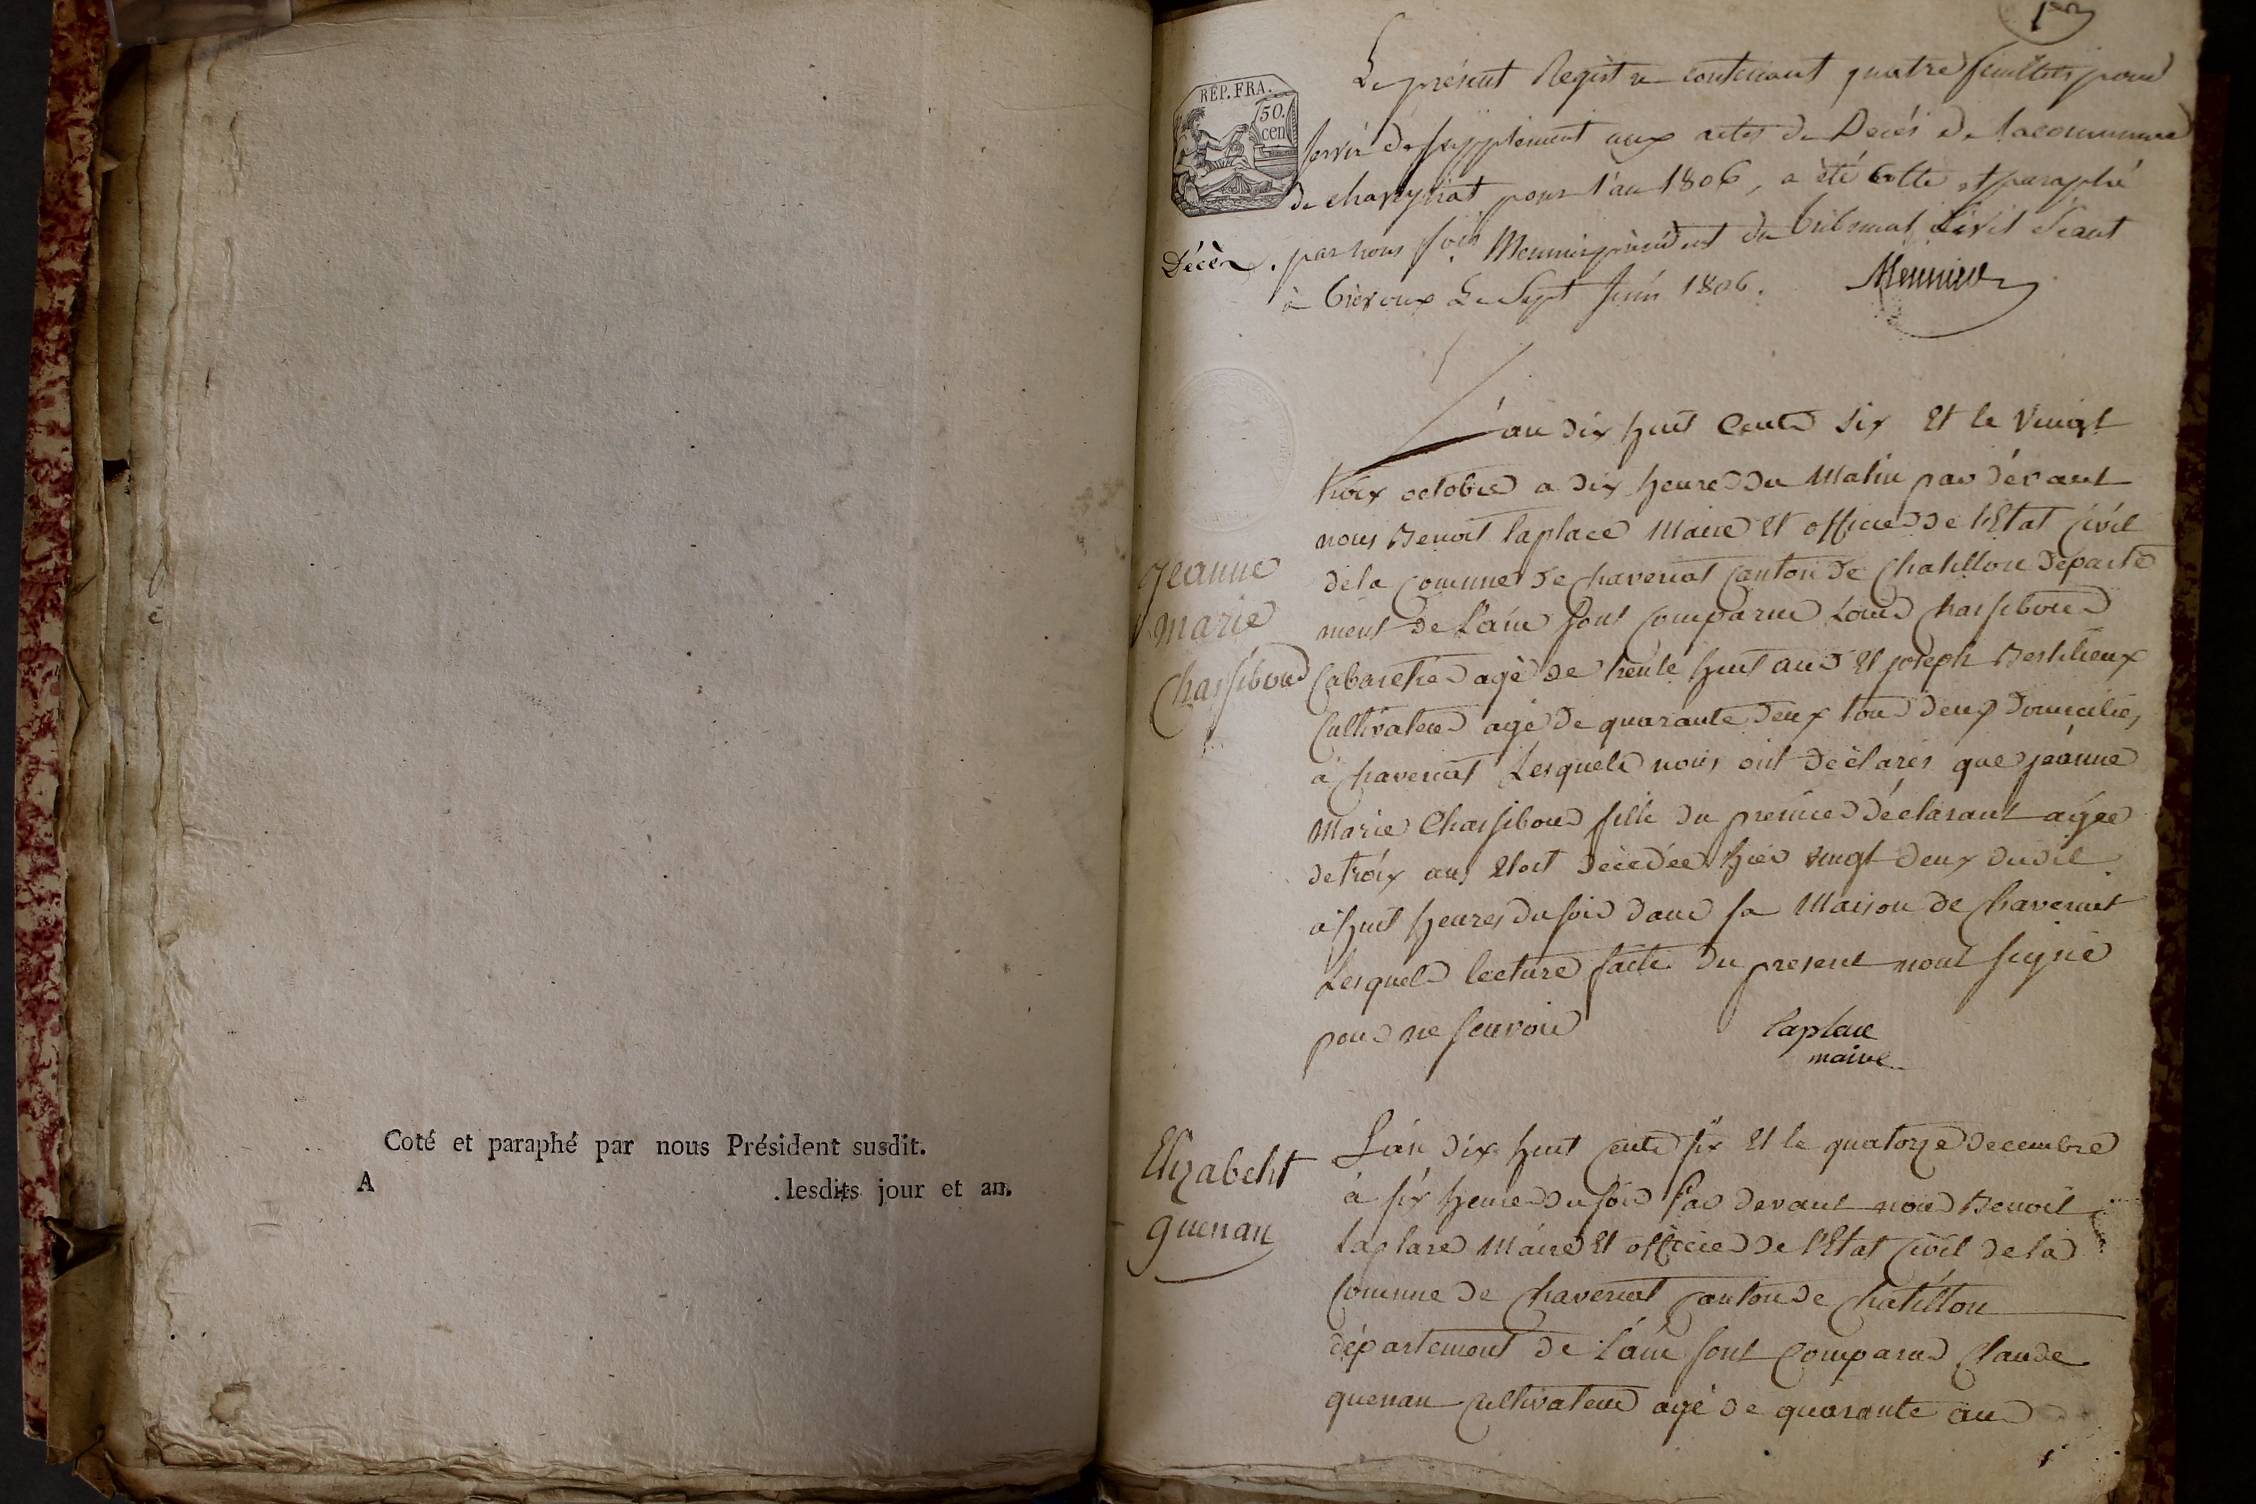 Coté et paraphé par nous Président susdit.
A lesdits jour et an.
REP. FRA.
50.
cen
Le présent Registre contenant quatre feuillets pour
servir de supplément aux actes de Décés de la commune
de chaveyriat pour l'an 1806, a été Cotté et paraphé
Décès.
par nous Meunier président du tribunal Civil séant
à trévoux Le Sept Juin 1806.
Meunier
L'an dix huit Cent Six Et le Vingt
troix octobre a dix heure du Matin par dévant
nous Benoit laplace Maire Et officier de l'Etat Civil
dela Comune de Chaveriat Canton de Chatillon départe
ment de L'ain sont Comparue Loui Chassibour
Jeanne
marie
Chassibour
Cabaretier agé de trente huit ans Et joseph Berthieux
Cultivateur agé de quarante deux tou deux Domicilié,
à Chaveriat Lesquels nous ont déclarés que jeanne
Marie Chassibour fille du premier déclarant agée
de troix ans Etoit décédée hier vingt deux dudit
à huit heures du soir dans sa Maison de Chaveriat
Lesquels lecture faite du present nont signé
pour ne scavoir
laplace
maire
Elizabeht
guenan
L'an dix huit cent six Et le quatorze decembre
à six heure du soir Par devant nous Benoit
Laplace Maire Et officier de l'Etat Civil de la
Comune de Chaveriat Canton de Chatillon
département de L'ain sont Comparus Claude
guenan Cultivateur agé de quarante ans